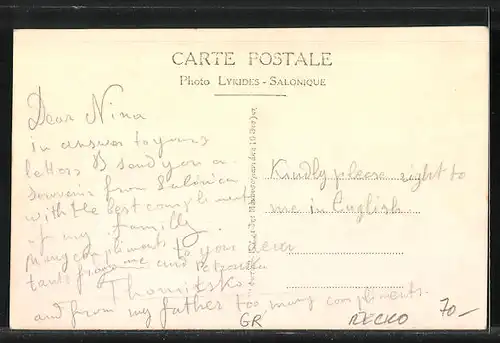 CARTE POSTALE
Photo LYKIDES - SALONIQUE
Dear Nina
in answer to yours
letters I send you a
souvenir from Salonica
with the best compliments
of my family.
Many compliments to your dear
tant from me and
and from my father too many compliments.
Kindly please right to
me in English
GR
RECKO
70-